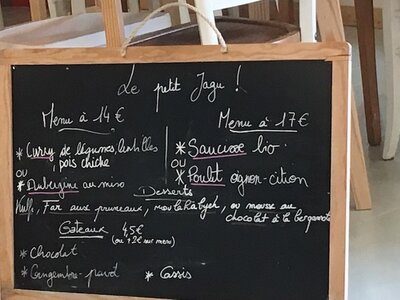 Le petit Jagu !
Menu à 14 €
* Curry de légumes, lentilles
pois chiche
ou
* Aubergine au miso
Menu à 17 €
* Saucisse bio
ou
* Poulet oignon-citron
Desserts
Kulfi, Far aux pruneaux, ou mousse au
chocolat à la bergamote
Gateaux 4,5€
(ou +2€ sur menu)
* Chocolat
* Gingembre-pavot
* Cassis